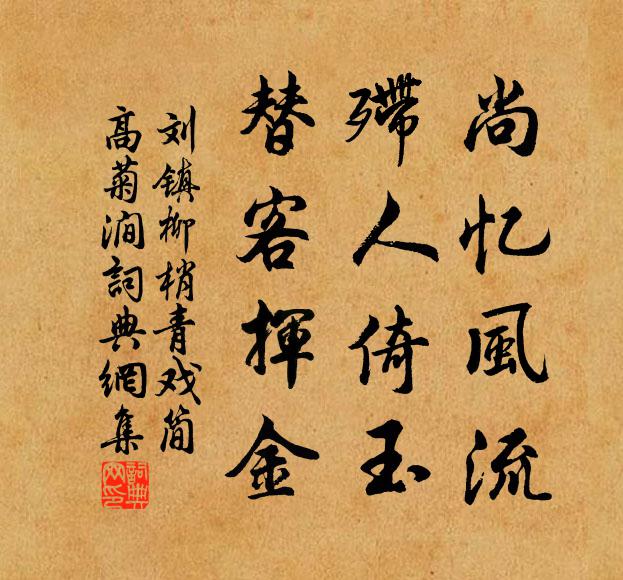 尚忆風流
殢人倚玉
替客揮金
刘镇柳梢青戏简
高菊涧詞典網集
詞典网印